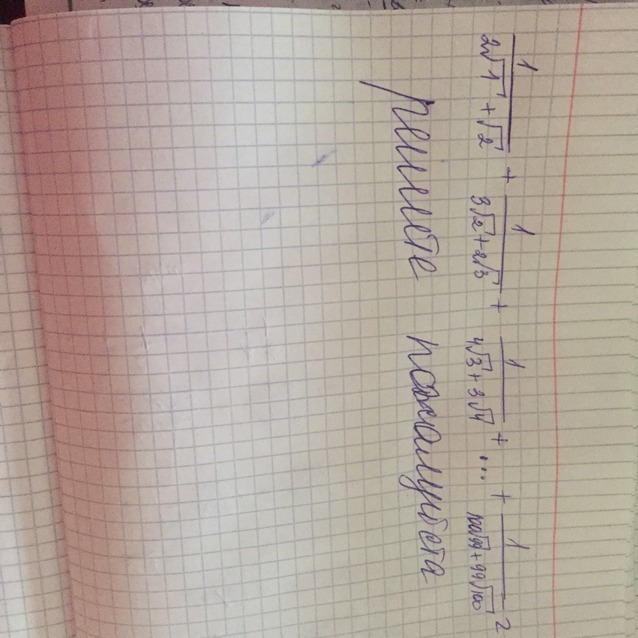 1/(2√1 + √2) + 1/(3√2 + 2√3) + 1/(4√3 + 3√4) + ... + 1/(100√99 + 99√100) 2
решите пожалуйста